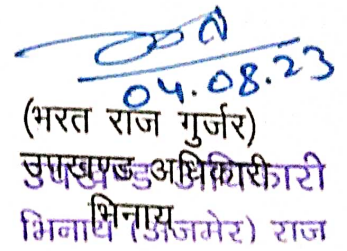 04.08.23
(भरत राज गुर्जर)
उपखण्ड अधिकारी
भिनाय
उपखण्ड अधिकारी
भिनाय (अजमेर) राज